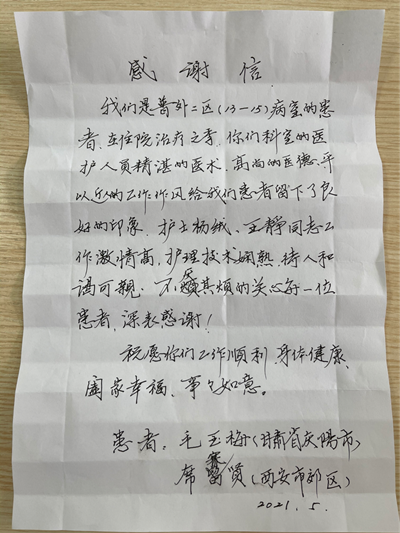 感谢信
我们是普外二区(13-15)病室的患
者,在住院治疗之季,你们科室的医
护人员精湛的医术,高尚的医德,平
以近的工作作风给我们患者留下了良
好的印象,护士杨绒、王静同志工
作激情高,护理技术娴熟,待人和
谒可親,不厌其烦的关心每一位
患者,深表感谢!
祝愿你们工作顺利,身体健康,
阖家幸福,事事如意。
患者:毛玉梅(甘肃省庆阳市)
席赛贤(西安市郊区)
2021.5.